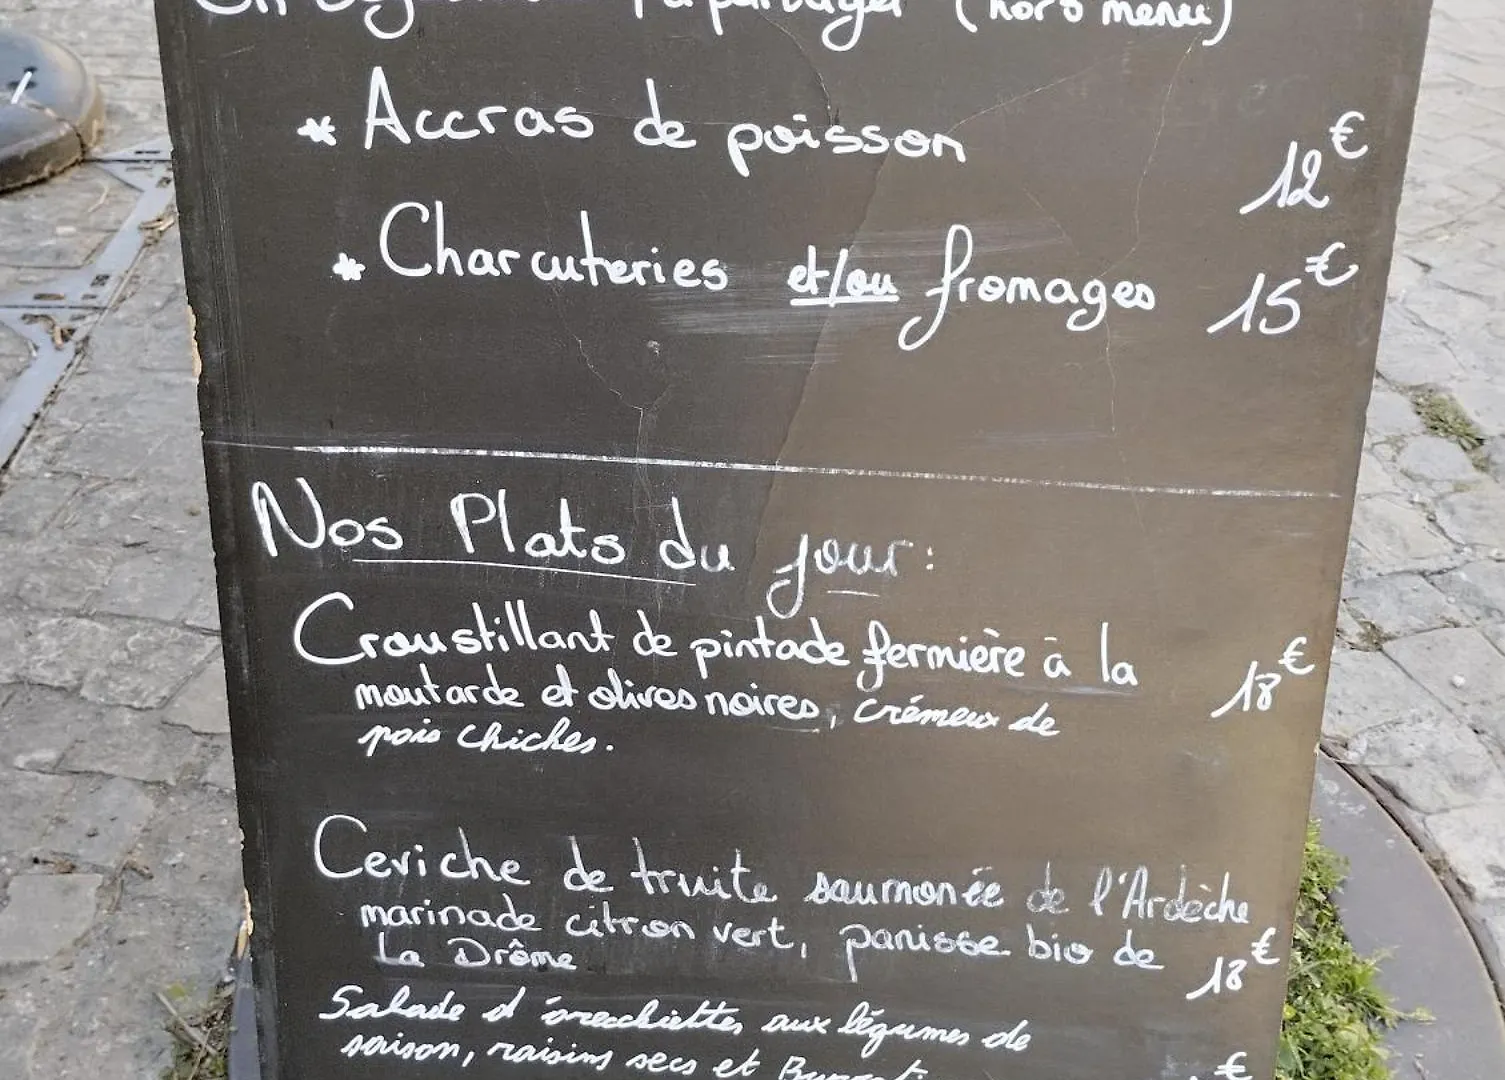 à partager (hors menu)
* Accras de poisson 12€
* Charcuteries et/ou fromages 15€
Nos Plats du jour :
Croustillant de pintade fermière à la
moutarde et olives noires, crémeux de 18€
pois chiches.
Ceviche de truite saumonée de l'Ardèche
marinade citron vert, panisse bio de
La Drôme 18€
Salade d'orecchiettes aux légumes de
saison, raisins secs et €